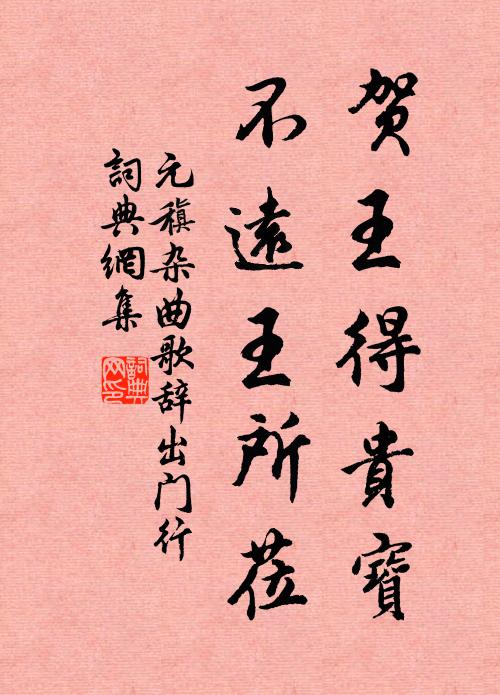 贺王得貴寳
不遠王所莅
元稹杂曲歌辞出门行
詞典網集
詞典网印